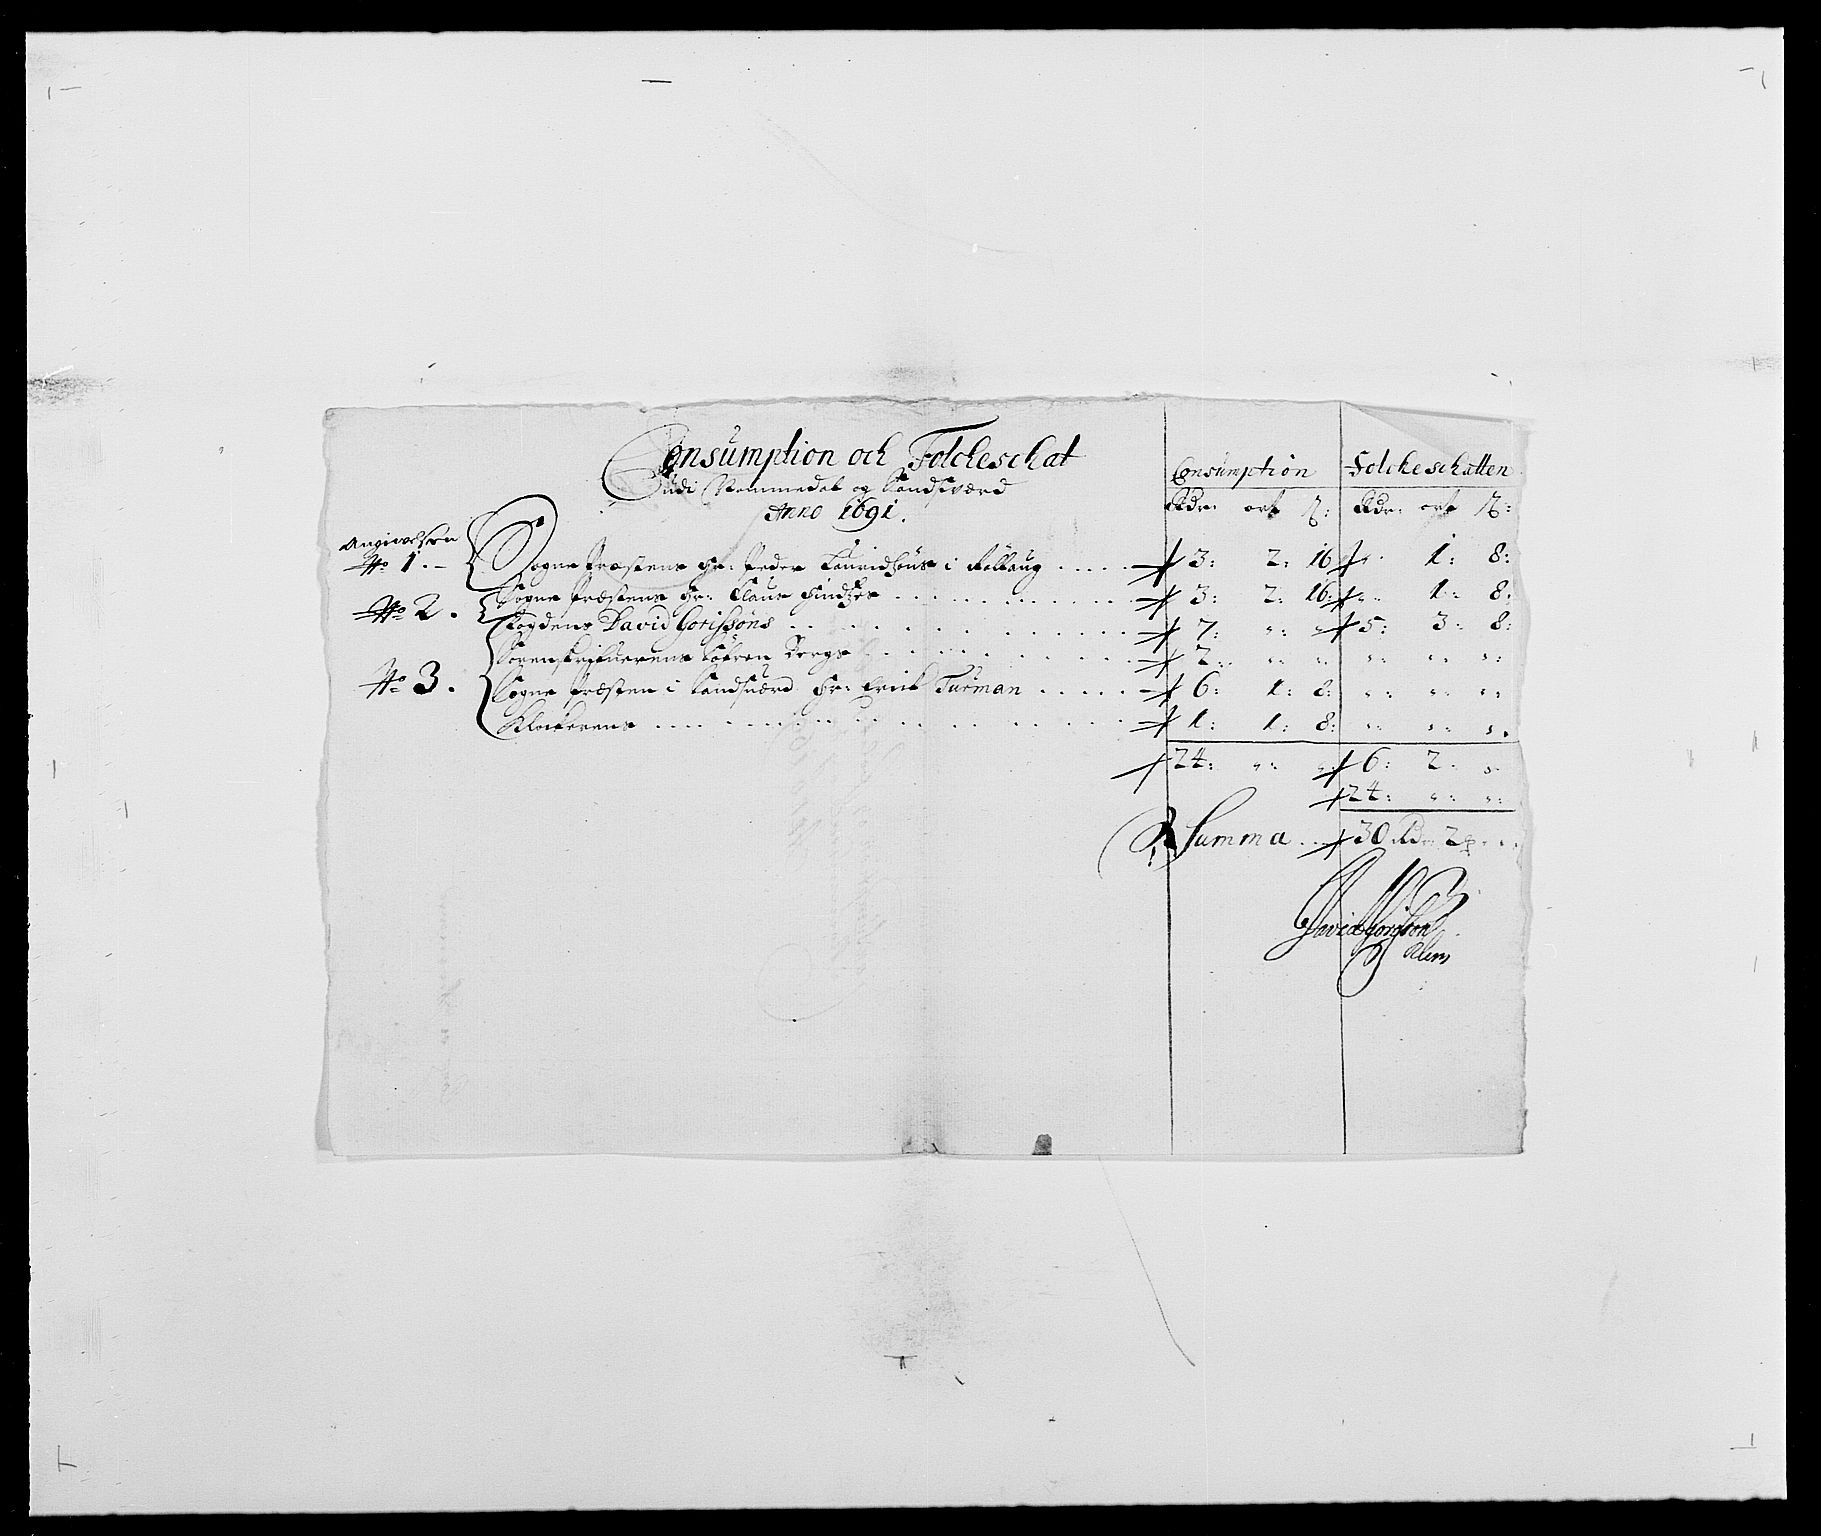 Consumption och Folckeschat
Udi Nommedal og Sandsværd
Anno 1691.
Consumption Folckeschatten
Rdr: ort ß: Rdr: ort ß:
Angivelsen
No 1. Sogne Præstens Hr: Peder Lauridsøns i Rollaug 3: 2: 16 1: 8:
No 2. Sogne Præstens Hr: Claus 3: 2: 16: 1: 8:
Fogdens David Gorissøns 7: 5: 3: 8:
Sorenskrifuerens Søfren Bergs 2:
No 3. Sogne Præsten i Sandsuærd Hr: Erick Turman 6: 1: 8:
Klockerens 1: 1: 8:
24: 6: 2:
24:
Summa 30 Rdr 2
David Gorisson